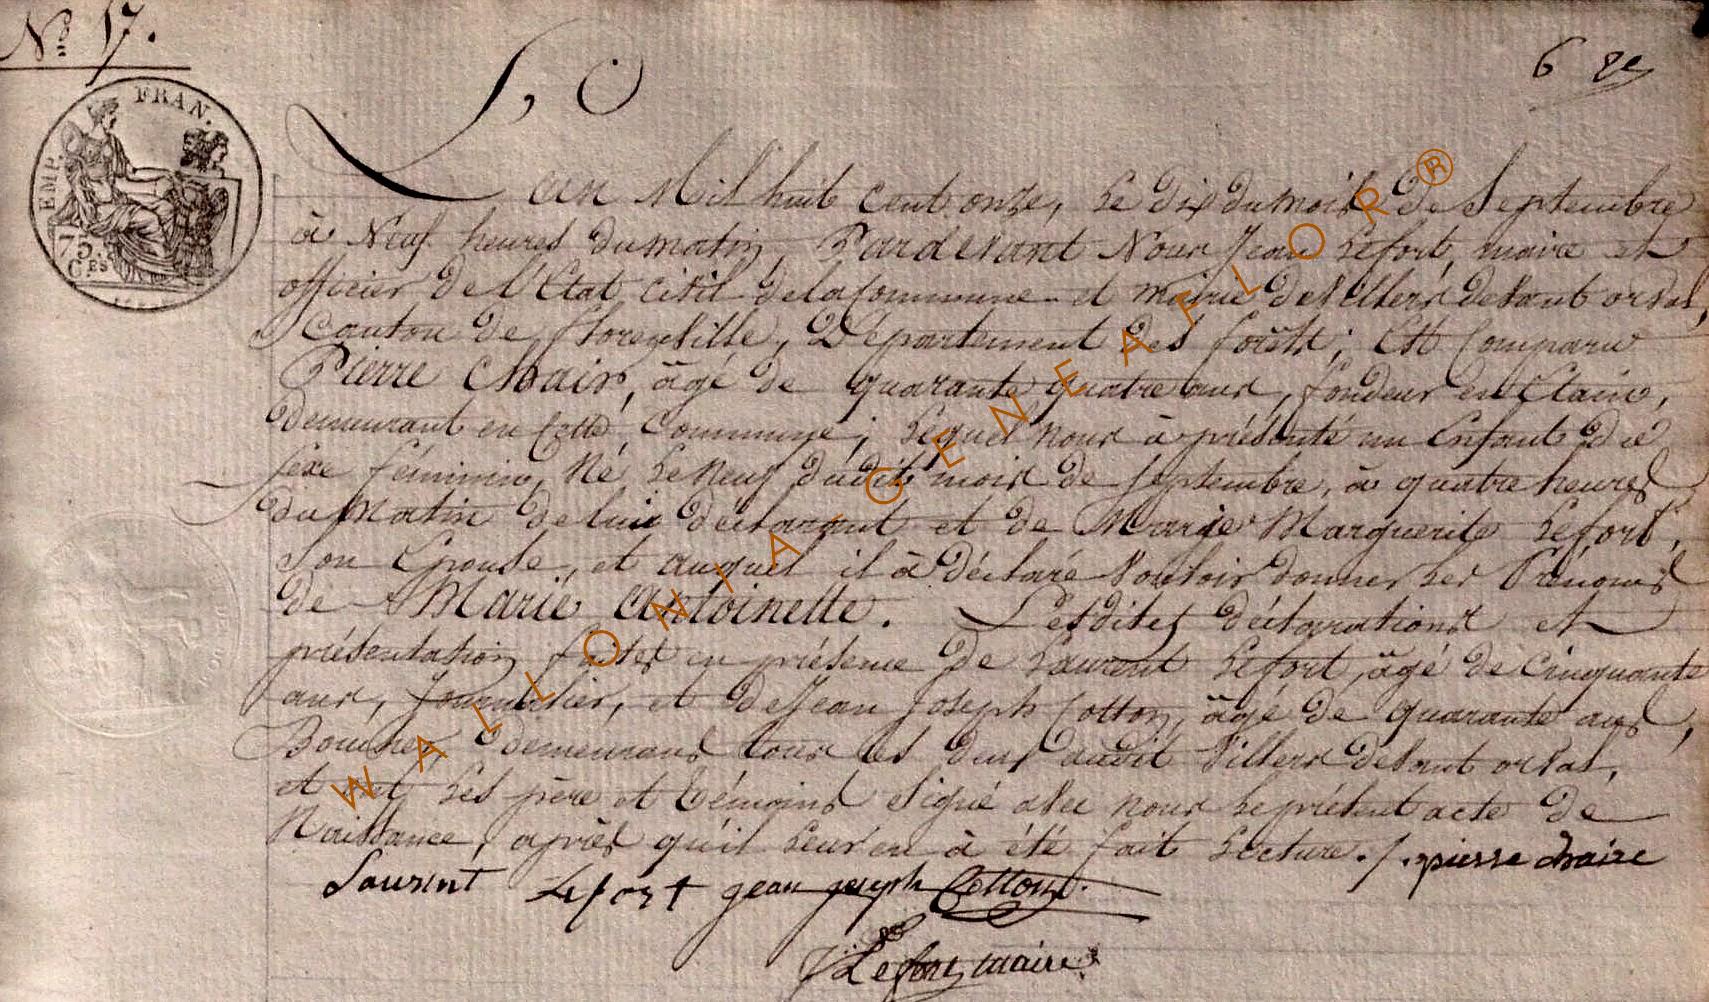 N° 17.
6
EMP. FRAN.
75.
CES
L'an Mil huit cent onze, Le Dix du mois de Septembre
à Neuf heures du matin, Pardevant Nous Jean Lefort, maire et
officier de l'Etat civil de la Commune et mairie de Villers devant orval,
Canton de Florenville, Département des forêts; Est Comparu
Pierre Chair, âgé de quarante quatre ans, fondeur en Etain,
demeurant en Cette Commune; Lequel nous à présenté un Enfant du
sexe féminin, Né Le Neuf dudit mois de Septembre, à quatre heures
du Matin de lui déclarant et de Marie Marguerite Lefort,
Son Epouse, et auquel il à déclaré Vouloir donner Les Prénoms
de Marie Antoinette. Lesdites déclarations et
présentation faites en présence de Laurent Lefort, âgé de Cinquante
ans, Journalier, et de Jean Joseph Cotton, âgé de quarante ans,
Boucher demeurans tous les deux audit Villers devant orval,
et ont Les père et témoins signé avec nous Le présent acte de
Naissance, après qu'il Leur en à été fait Lecture. /. pierre chaire
Laurent Lefort jean joseph Cotton.
J Lefort maire
WALLONIA-GENEAFLOR®